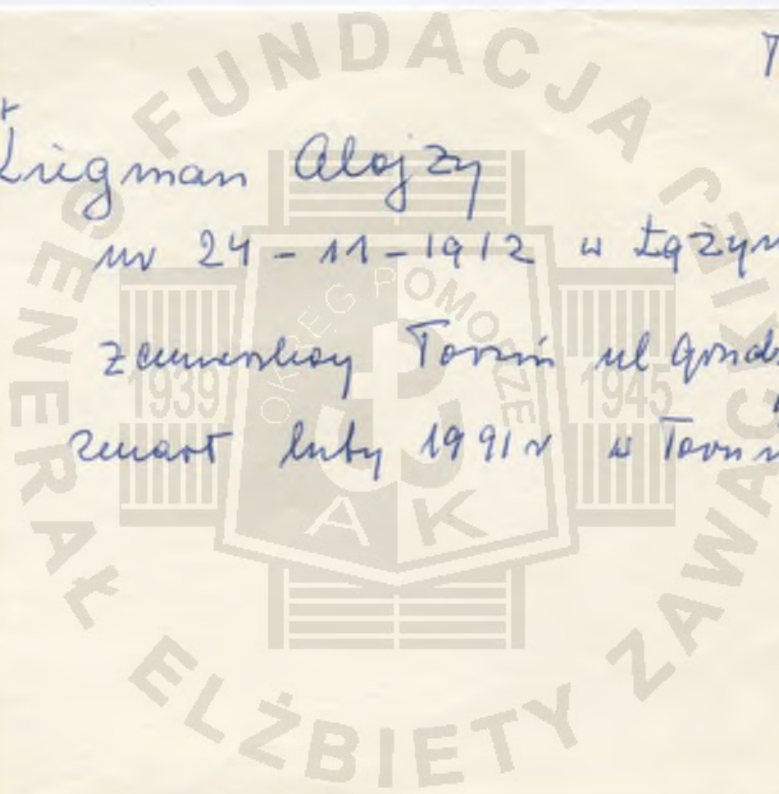 Alojzy
ur 24-11-1912 w Łążyn
zamieszkały Toruń ul Grudz
zmarł luty 1991 r w Toruń
FUNDACJA GENERAŁ ELŻBIETY ZAWACKIEJ
OKRĘG POMORZE
1939 1945
AK